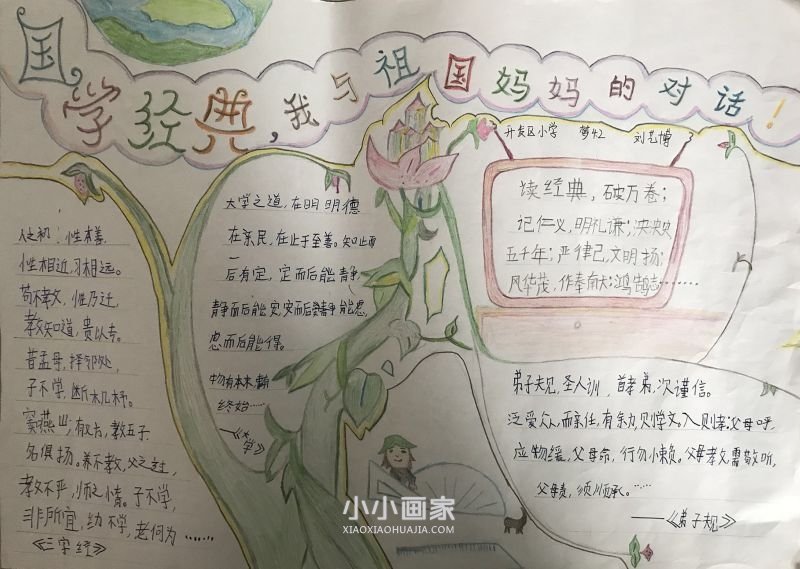 国学经典,我与祖国妈妈的对话!
开发区小学 刘艺博
人之初,性本善,
性相近,习相远。
苟不教,性乃迁,
教之道,贵以专。
昔孟母,择邻处,
子不学,断机杼。
窦燕山,有义方,教五子,
名俱扬。养不教,父之过,
教不严,师之惰。子不学,
非所宜,幼不学,老何为……
《三字经》
大学之道,在明明德
在亲民,在止于至善。知止而
后有定,定而后能静,
静而后能安,安而后能虑,
虑而后能得。
物有本末,
终始……
——《大学》
读经典,破万卷;
记仁义,明礼谦;泱泱
五千年;严律己,文明扬;
风华茂,作奉献;鸿鹄志……
弟子规,圣人训,首孝弟,次谨信。
泛爱众,而亲仁,有余力,则学文。入则孝:父母呼,
应勿缓,父母命,行勿懒。父母教,需敬听,
父母责,须顺承。……
——《弟子规》
小小画家
XIAOXIAOHUAJIA.COM